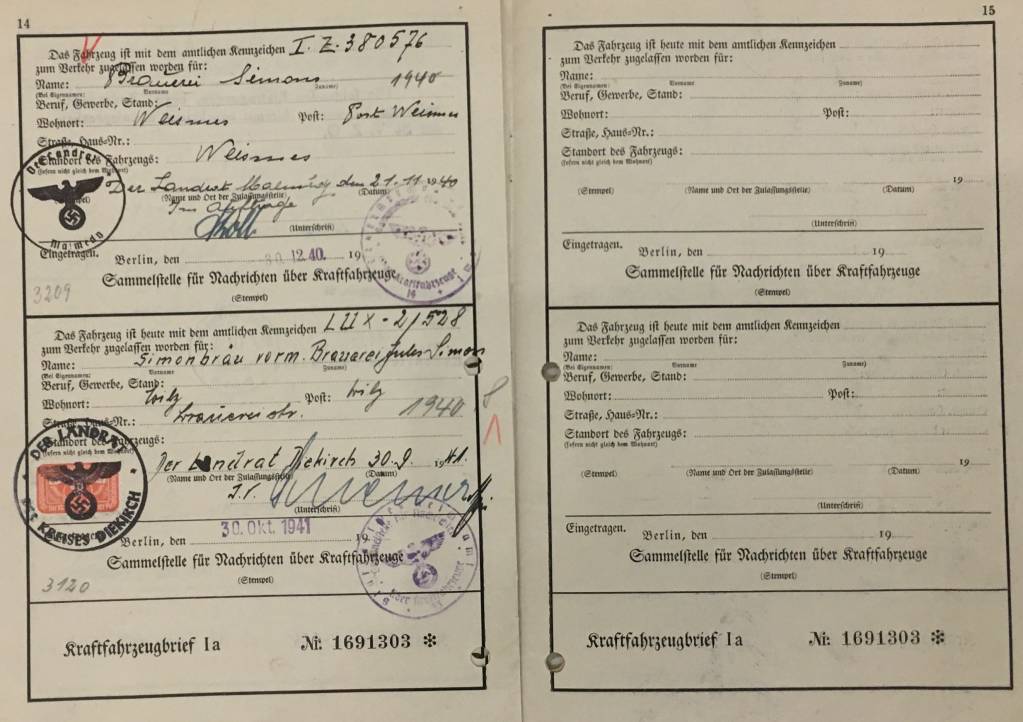 14
Das Fahrzeug ist mit dem amtlichen Kennzeichen I.Z.380576
zum Verkehr zugelassen worden für:
Name: Brauerei Simons 1940
(Bei Eigennamen: Vorname Zuname)
Beruf, Gewerbe, Stand:
Wohnort: Weismes Post: Port Weismes
Straße, Haus-Nr.:
Standort des Fahrzeugs: Weismes
(sofern nicht gleich dem Wohnort)
Der Landrat Malmedy den 21.11.1940
(Name und Ort der Zulassungsstelle) (Datum)
Im Auftrage
(Unterschrift)
Der Landrat
Malmedy
Eingetragen. Berlin, den 30.12.40. 19
Sammelstelle für Nachrichten über Kraftfahrzeuge
(Stempel)
3209
Das Fahrzeug ist heute mit dem amtlichen Kennzeichen LUX-21528
zum Verkehr zugelassen worden für:
Name: Simonbräu vorm. Brauerei Jules Simon
(Bei Eigennamen: Vorname Zuname)
Beruf, Gewerbe, Stand:
Wohnort: Wilz Post: Wilz
Straße, Haus-Nr.: Brauereistr. 1940
Standort des Fahrzeugs:
(sofern nicht gleich dem Wohnort)
Der Landrat Diekirch 30.9. 1941.
(Name und Ort der Zulassungsstelle) (Datum)
I.V.
(Unterschrift)
DER LANDRAT
DES KREISES DIEKIRCH
30. Okt. 1941
Berlin, den 19
Sammelstelle für Nachrichten über Kraftfahrzeuge
(Stempel)
3120
Kraftfahrzeugbrief Ia Nr. 1691303 ✻
15
Das Fahrzeug ist heute mit dem amtlichen Kennzeichen
zum Verkehr zugelassen worden für:
Name:
(Bei Eigennamen: Vorname Zuname)
Beruf, Gewerbe, Stand:
Wohnort: Post:
Straße, Haus-Nr.:
Standort des Fahrzeugs:
(sofern nicht gleich dem Wohnort)
19
(Stempel) (Name und Ort der Zulassungsstelle) (Datum)
(Unterschrift)
Eingetragen. Berlin, den 19
Sammelstelle für Nachrichten über Kraftfahrzeuge
(Stempel)
Das Fahrzeug ist heute mit dem amtlichen Kennzeichen
zum Verkehr zugelassen worden für:
Name:
(Bei Eigennamen: Vorname Zuname)
Beruf, Gewerbe, Stand:
Wohnort: Post:
Straße, Haus-Nr.:
Standort des Fahrzeugs:
(sofern nicht gleich dem Wohnort)
19
(Stempel) (Name und Ort der Zulassungsstelle) (Datum)
(Unterschrift)
Eingetragen. Berlin, den 19
Sammelstelle für Nachrichten über Kraftfahrzeuge
(Stempel)
Kraftfahrzeugbrief Ia Nr. 1691303 ✻